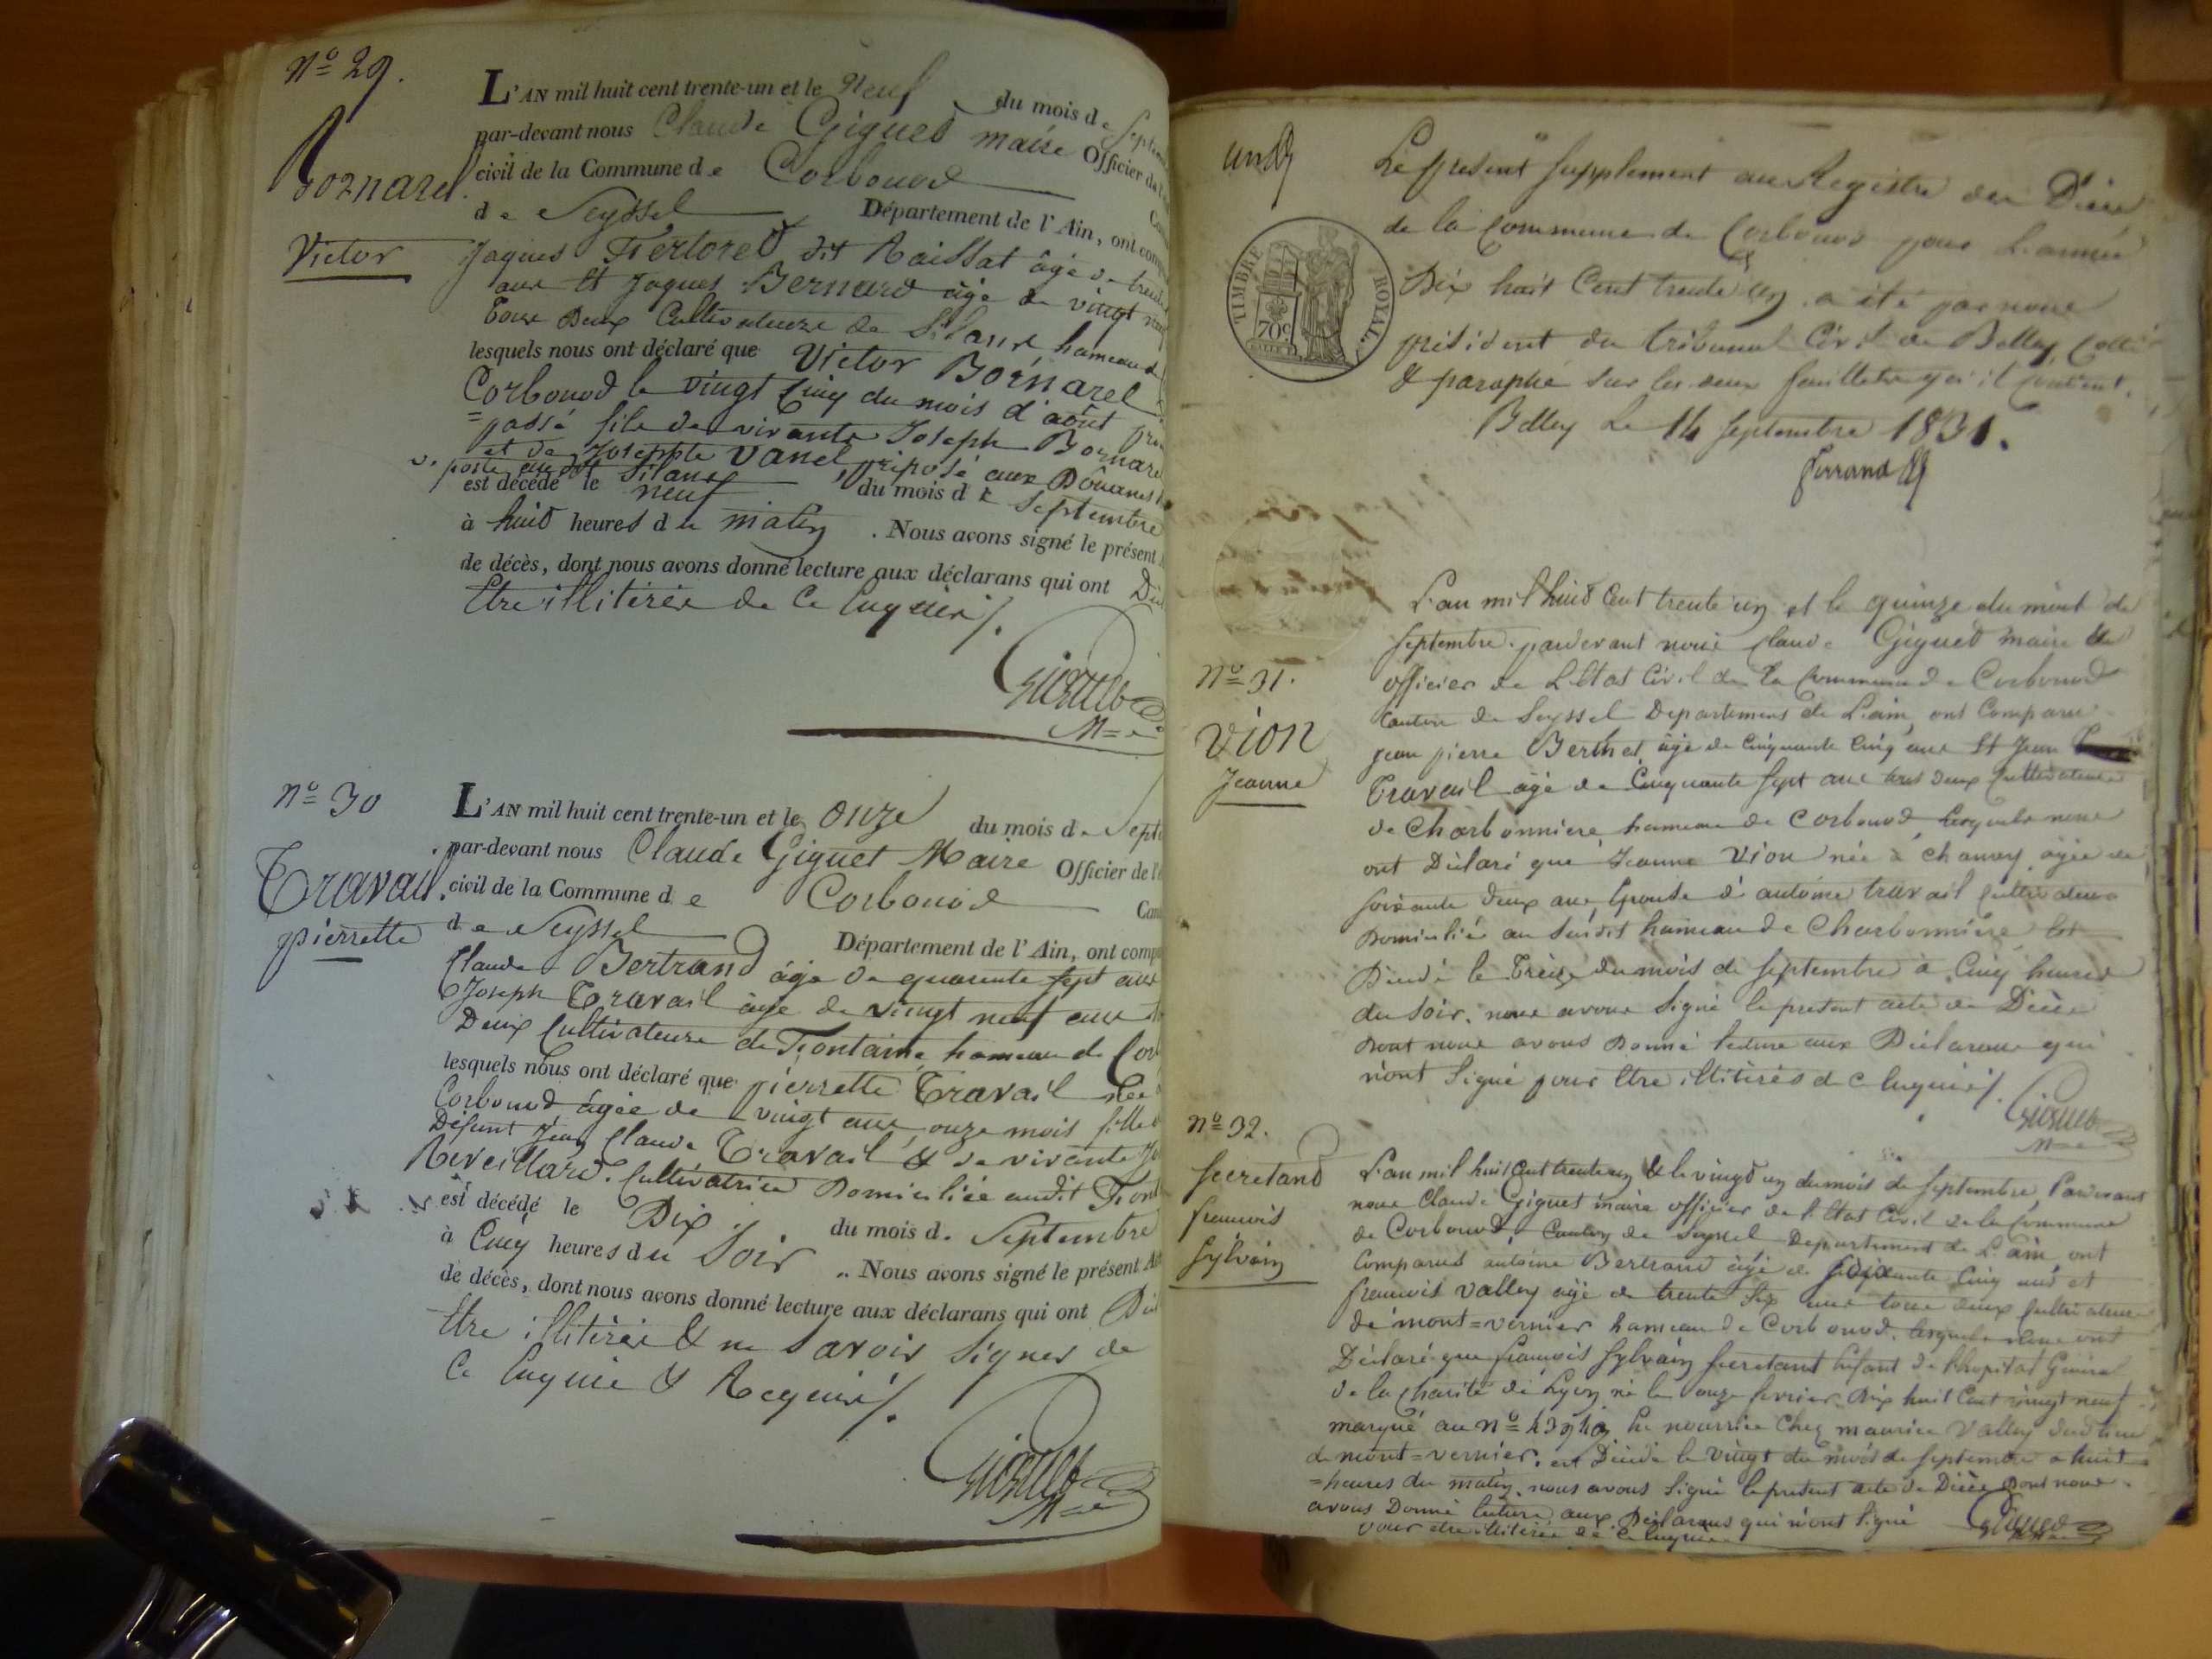 Nº 29.
Bornarel.
Victor
L'AN mil huit cent trente-un et le Neuf du mois de Septem
par-devant nous Claude Giguet maire Officier de l'
civil de la Commune de Corbonod
de Seyssel Département de l'Ain, ont comp
Jaques Fertoret dit Raissat âgé de trente
ans et Jaques Bernard âgé de vingt
Tous Deux Cultivateurs de Silans, hameau d
lesquels nous ont déclaré que Victor Bornarel
Corbonod le vingt Cinq du mois d'août
=passé fils de vivants Joseph Bornarel
et de Josephte Vanel, préposé aux Douanes
poste au dit Silans
est décédé le neuf du mois de Septembre
à huit heures du matin . Nous avons signé le présent
de décès, dont nous avons donné lecture aux déclarans qui ont
Etre illitérés de Ce Enquis /.
Giguet
Mre
Nº 30
Travail.
pierrette
L'AN mil huit cent trente-un et le onze du mois de Sept
par-devant nous Claude Giguet Maire Officier de l'
civil de la Commune de Corbonod Can
de Seyssel Département de l'Ain, ont comp
Claude Bertrand âgé de quarante sept ans
Joseph Travail âgé de vingt neuf ans
Deux Cultivateurs de Fontaine, hameau de Cor
lesquels nous ont déclaré que pierrette Travail née
Corbonod âgée de vingt ans, onze mois fille
Défunt Jean Claude Travail & de vivante
Reveillard. Cultivatrice Domiciliée audit Font
est décédé le Dix du mois de Septembre
à Cinq heures du Soir . Nous avons signé le présent A
de décès, dont nous avons donné lecture aux déclarans qui ont
Etre illitérés & ne Savoir Signer de
Ce Enquis & Requis /.
Giguet
Mre
un
Le present supplement au Registre des Décès
de la Commune de Corbonod pour L'année
Dix huit Cent trente un, a été par nous
président du tribunal Civil de Belley, Cotté
& paraphé sur les deux feuillets qu'il contient.
Belley Le 14 Septembre 1831.
Ferrand
TIMBRE ROYAL
70 c.
L'an mil huit Cent trente un et le quinze du mois de
Septembre. pardevant nous Claude Giguet maire
officier de L'Etat Civil de la Commune de Corbonod
Canton de Seyssel Departement de L'ain, ont Comparu
Nº 31.
Vion
Jeanne
jean pierre Berthet, âgé de Cinquante Cinq ans et Jean
Travail âgé de Cinquante Sept ans tous deux Cultivateurs
de Charbonniere hameau de Corbonod, lesquels nous
ont Déclaré que Jeanne Vion née à Chanay, âgée de
soixante deux ans Epouse d'antoine travail Cultivateur
Domicilié au Susdit hameau de Charbonnière Est
Décédé le Treize du mois de Septembre à Cinq heures
du Soir. nous avons Signé le présent acte de Décès
Dont nous avons Donné lecture aux Déclarans qui
n'ont Signé pour Etre illitérés de Ce Enquis /.
Giguet
Mre
Nº 32.
Secretand
francois
Sylvain
L'an mil huit Cent trente un & le vingt un du mois de Septembre, Pardevant
nous Claude Giguet maire officier de l'Etat Civil de la Commune
de Corbonod, Canton de Seyssel Departement de L'ain, ont
Comparus antoine Bertrand âgé de soixante Cinq ans et
francois Valley âgé de trente Six ans tous deux Cultivateurs
de mont=vernier hameau de Corbonod. lesquels nous ont
Déclaré que francois Sylvain Secretand Enfant de l'hopital Général
de la Charité de Lyon né le onze fevrier Dix huit Cent vingt neuf
marqué au nº En nourrice Chez maurice Valley dudit lieu
de mont=vernier. est Décédé le vingt du mois de Septembre a huit
=heures du matin. nous avons Signé le présent acte de Décès Dont nous
avons Donné lecture aux Déclarans qui n'ont Signé
pour etre illitérés de Ce Enquis
Giguet